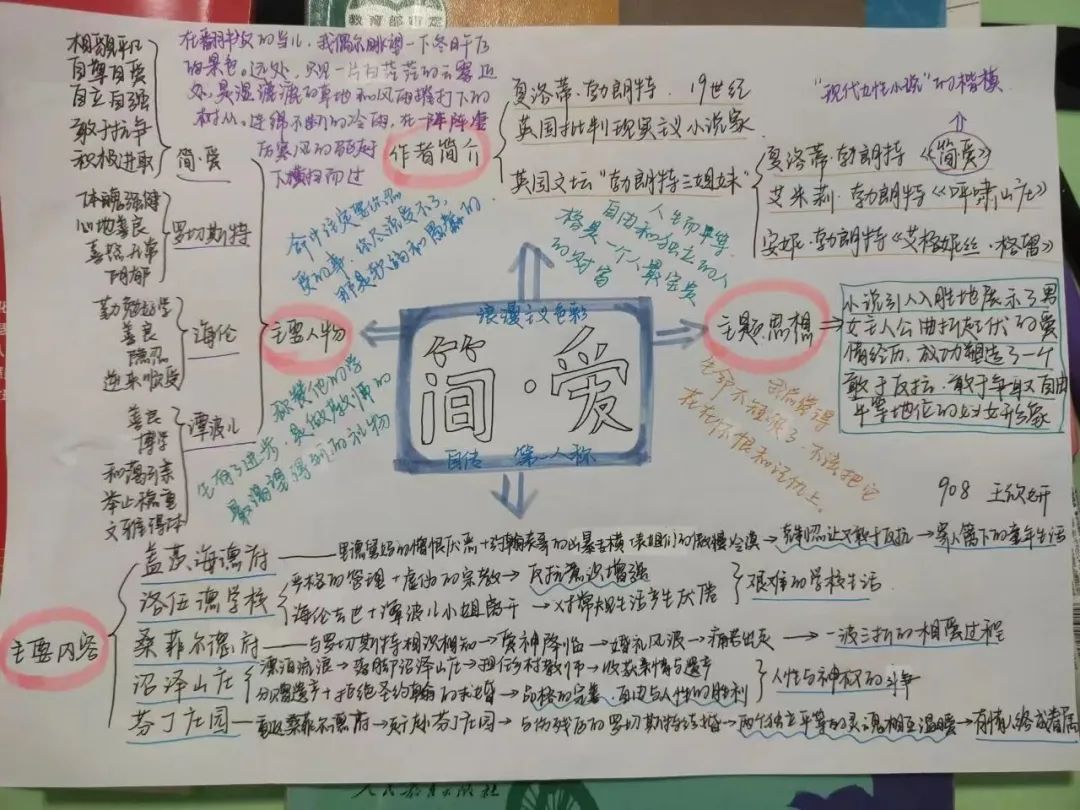 教育部审定
相貌平凡
自尊自爱
自立自强
敢于抗争
积极进取
简·爱
体魄强健
心地善良
喜怒无常
阴郁
罗切斯特
勤勉好学
善良
隐忍
逆来顺受
海伦
善良
博学
和蔼可亲
举止稳重
文雅得体
谭波儿
主要人物
在翻书页的当儿,我偶尔眺望一下冬日午后
的景色。远处,只见一片白茫茫的云雾,近
处,是湿漉漉的草地和风雨摧打下的
树丛。连绵不断的冷雨,在一阵阵凄
厉寒风的驱赶
下横扫而过
作者简介
夏洛蒂·勃朗特. 19世纪
英国批判现实主义小说家
英国文坛“勃朗特三姐妹”
“现代女性小说”的楷模
夏洛蒂·勃朗特《简爱》
艾米莉·勃朗特《呼啸山庄》
安妮·勃朗特《艾格妮丝·格雷》
命中注定要你忍
受的事,你尽说受不了,
那是软弱和愚蠢的
人生而平等
自由和独立的人
格是一个人最宝贵
的财富
浪漫主义色彩
简·爱
自传 第一人称
主题思想
小说引人入胜地展示了男
女主人公曲折起伏的爱
情经历,成功塑造了一个
敢于反抗,敢于争取自由
平等地位的妇女形象
称赞他的学
生有了进步,是做教师的
最渴望得到的礼物
我总觉得
生命不短暂了,不该把它
花在怀恨和记仇上。
908 王欣妍
主要内容
盖茨海德府——里德舅妈的憎恨厌恶+约翰表哥的凶暴专横+表姐们的傲慢冷漠→克制忍让又敢于反抗→寄人篱下的童年生活
洛伍德学校
严格的管理+虚伪的宗教→反抗意识增强
海伦去世+谭波儿小姐离开→对常规生活产生厌倦
艰难的学校生活
桑菲尔德府——与罗切斯特相识相知→爱神降临→婚礼风波→痛苦出走→一波三折的相爱过程
沼泽山庄
漂泊流浪→落脚沼泽山庄→担任乡村教师→收获亲情与遗产
分赠遗产+拒绝圣约翰的求婚→品格的完善,自由与人性的胜利
人性与神权的斗争
芬丁庄园——重返桑菲尔德府→更赴芬丁庄园→与伤残后的罗切斯特结婚→两个独立平等的灵魂相互温暖→有情人终成眷属
人民教育出版社